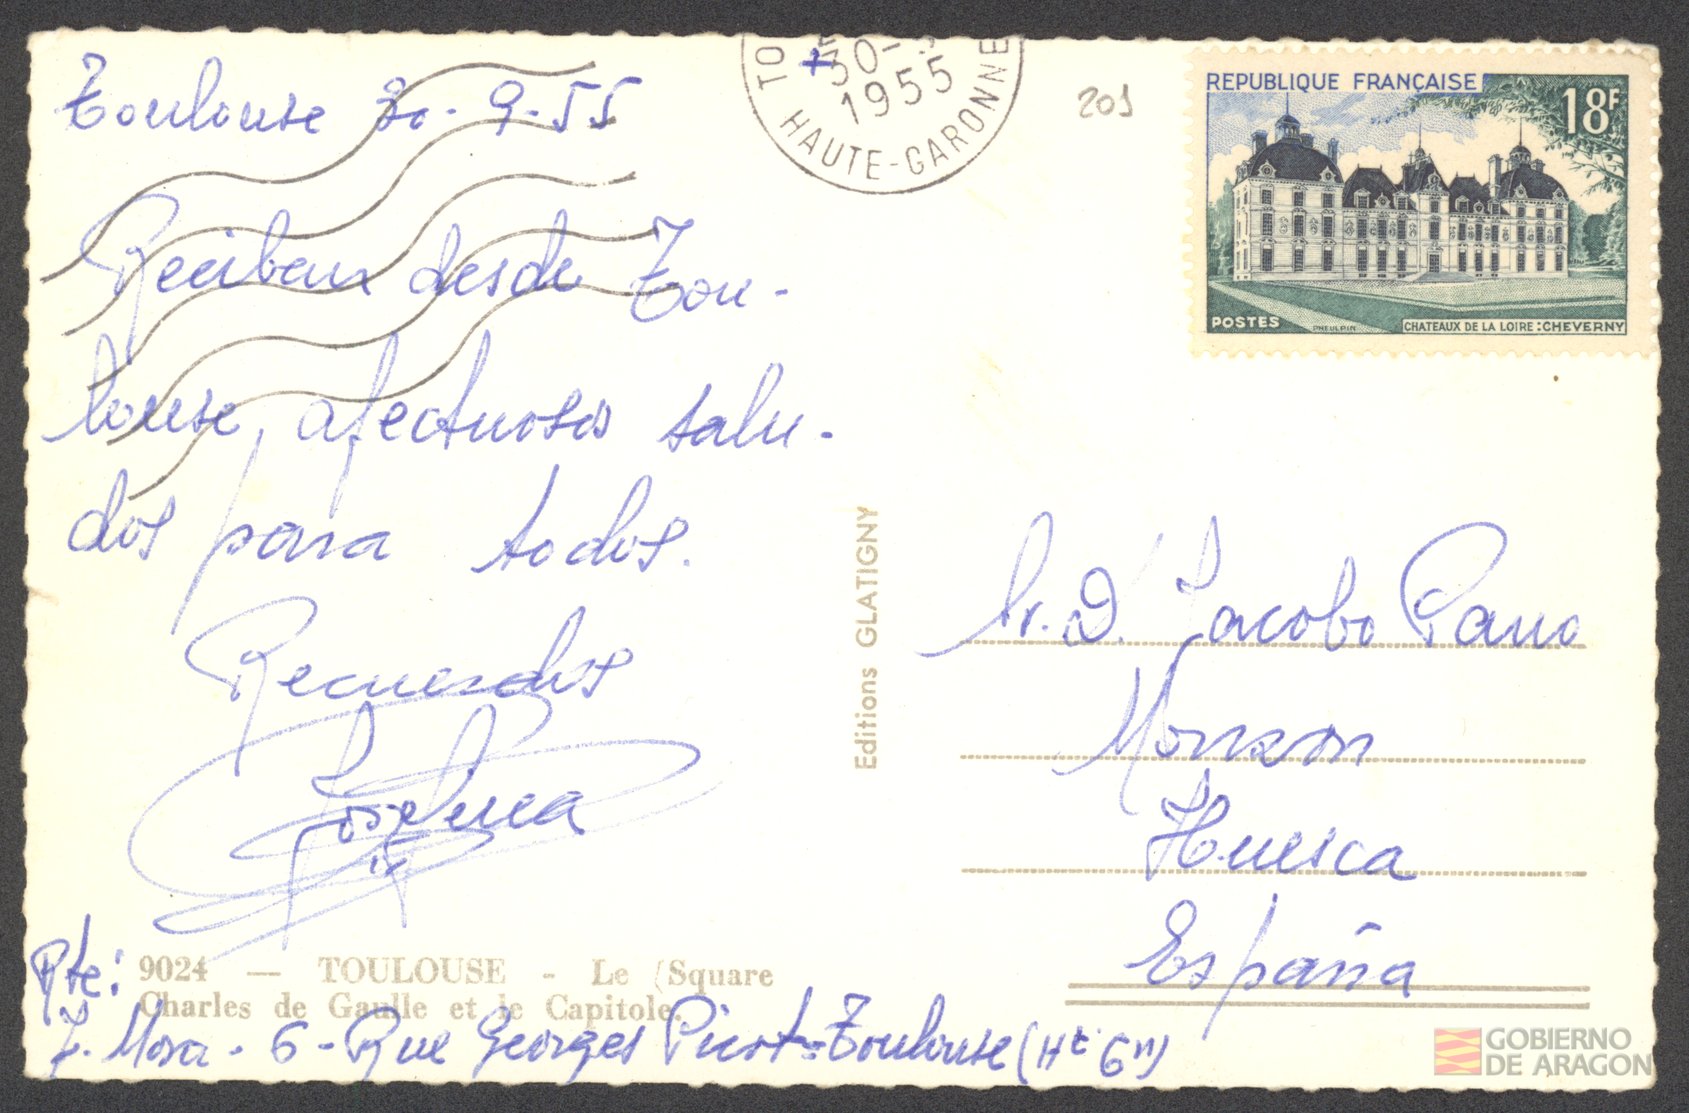 Toulouse 30-9-55
Reciban desde Tou-
louse, afectuosos salu-
dos para todos.
Recuerdos
Josefina
Rte:
9024 — TOULOUSE - Le (Square
Charles de Gaulle et le Capitole.
J. Mora - 6 - Rue Georges Picot - Toulouse (Hte Gn)
Editions GLATIGNY
30-
1955
HAUTE-GARONNE
201
REPUBLIQUE FRANÇAISE
18F
POSTES
PHEULPIN
CHATEAUX DE LA LOIRE : CHEVERNY
Sr. D. Jacobo Pano
Monzon
Huesca
España
GOBIERNO
DE ARAGON